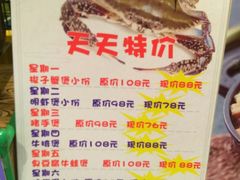 天天特价
星期一
梭子蟹煲小份 原价108元 现价88元
星期二
明虾煲小份 原价98元 现价78元
星期三
猪手煲 原价98元 现价76元
星期四
牛腩煲 原价108元 现价88元
星期五
牛蛙煲 原价108元 现价88元
星期六